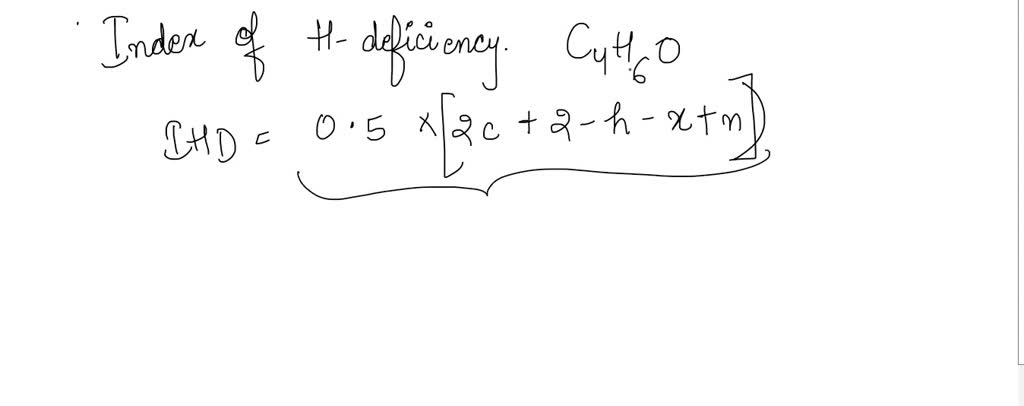 Index of H-deficiency. C4H6O
IHD = 0.5 x [2c + 2 - h - x + n]